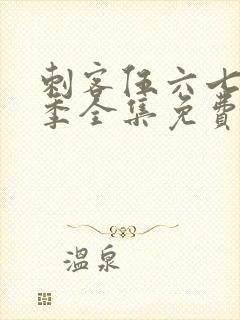 刺客伍六七
季全集免费
温泉